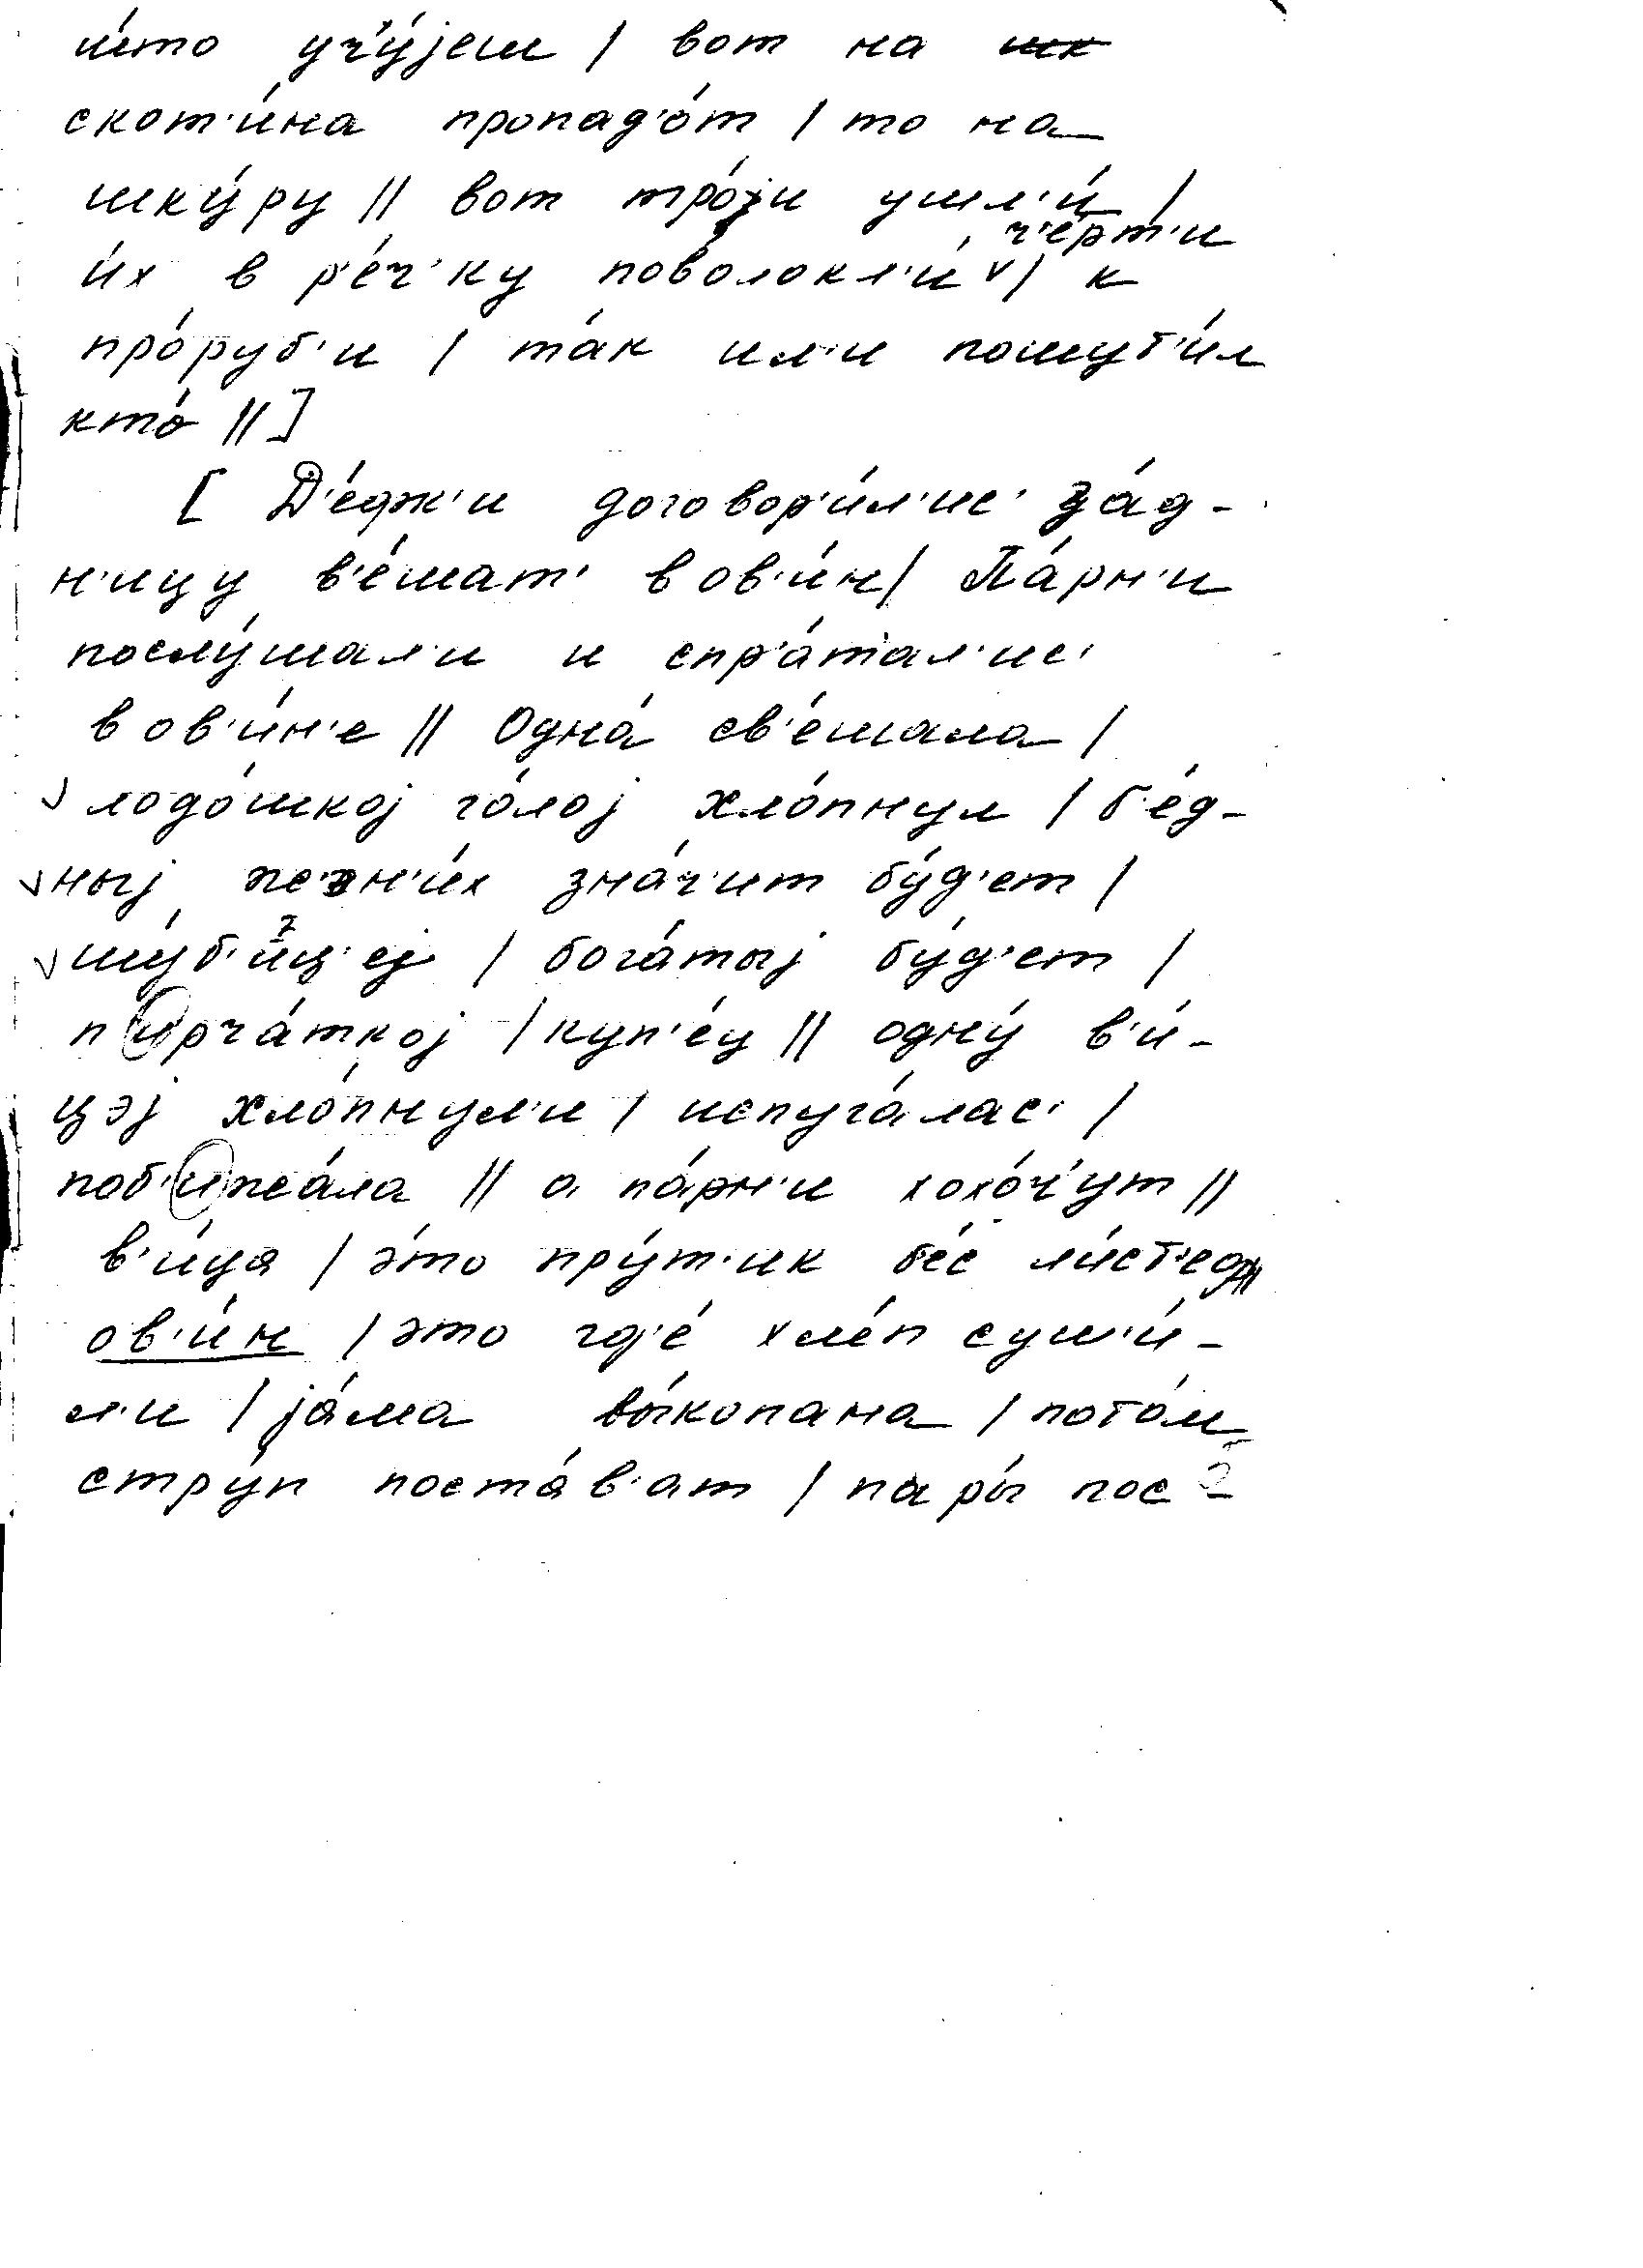 што уч'у́јеш / вот на ш̶к̶
скот'и́на пропад'о́т / то на
шку́ру // вот тро́ји ушл'и́ /
ч'е́рт'и
и́х в р'е́ч'ку поволокл'и́ ˅ / к
про́руб'и / та́к ил'и пошут'и́л
кто́ //]
[ Д'е́вк'и договор'и́л'ис' за́д-
н'ицу в'е́шат' в ов'и́н / Па́рн'и
послу́шал'и и спр'а́тал'ис'
в ов'и́н'е // Одна́ св'е́шала /
лодо́шкој го́лој хло́пнул / б'е́д-
ныј жен'и́х зна́ч'ит бу́д'ет /
шу́б'ицеј / бога́тыј бу́д'ет /
п'ирча́ткој / куп'е́ц // одну́ в'и́-
цэј хло́пнул'и / испуга́лас' /
поб'ижа́ла // а па́рн'и хохо́ч'ут //
в'и́ца / э́то пру́т'ик б'ес ли́ст'ев //
ов'и́н / э́то гд'е́ хл'е́п суш'и́-
л'и / ја́ма вы́копана / пото́м
стру́п поста́в'ат / пары́ пос -